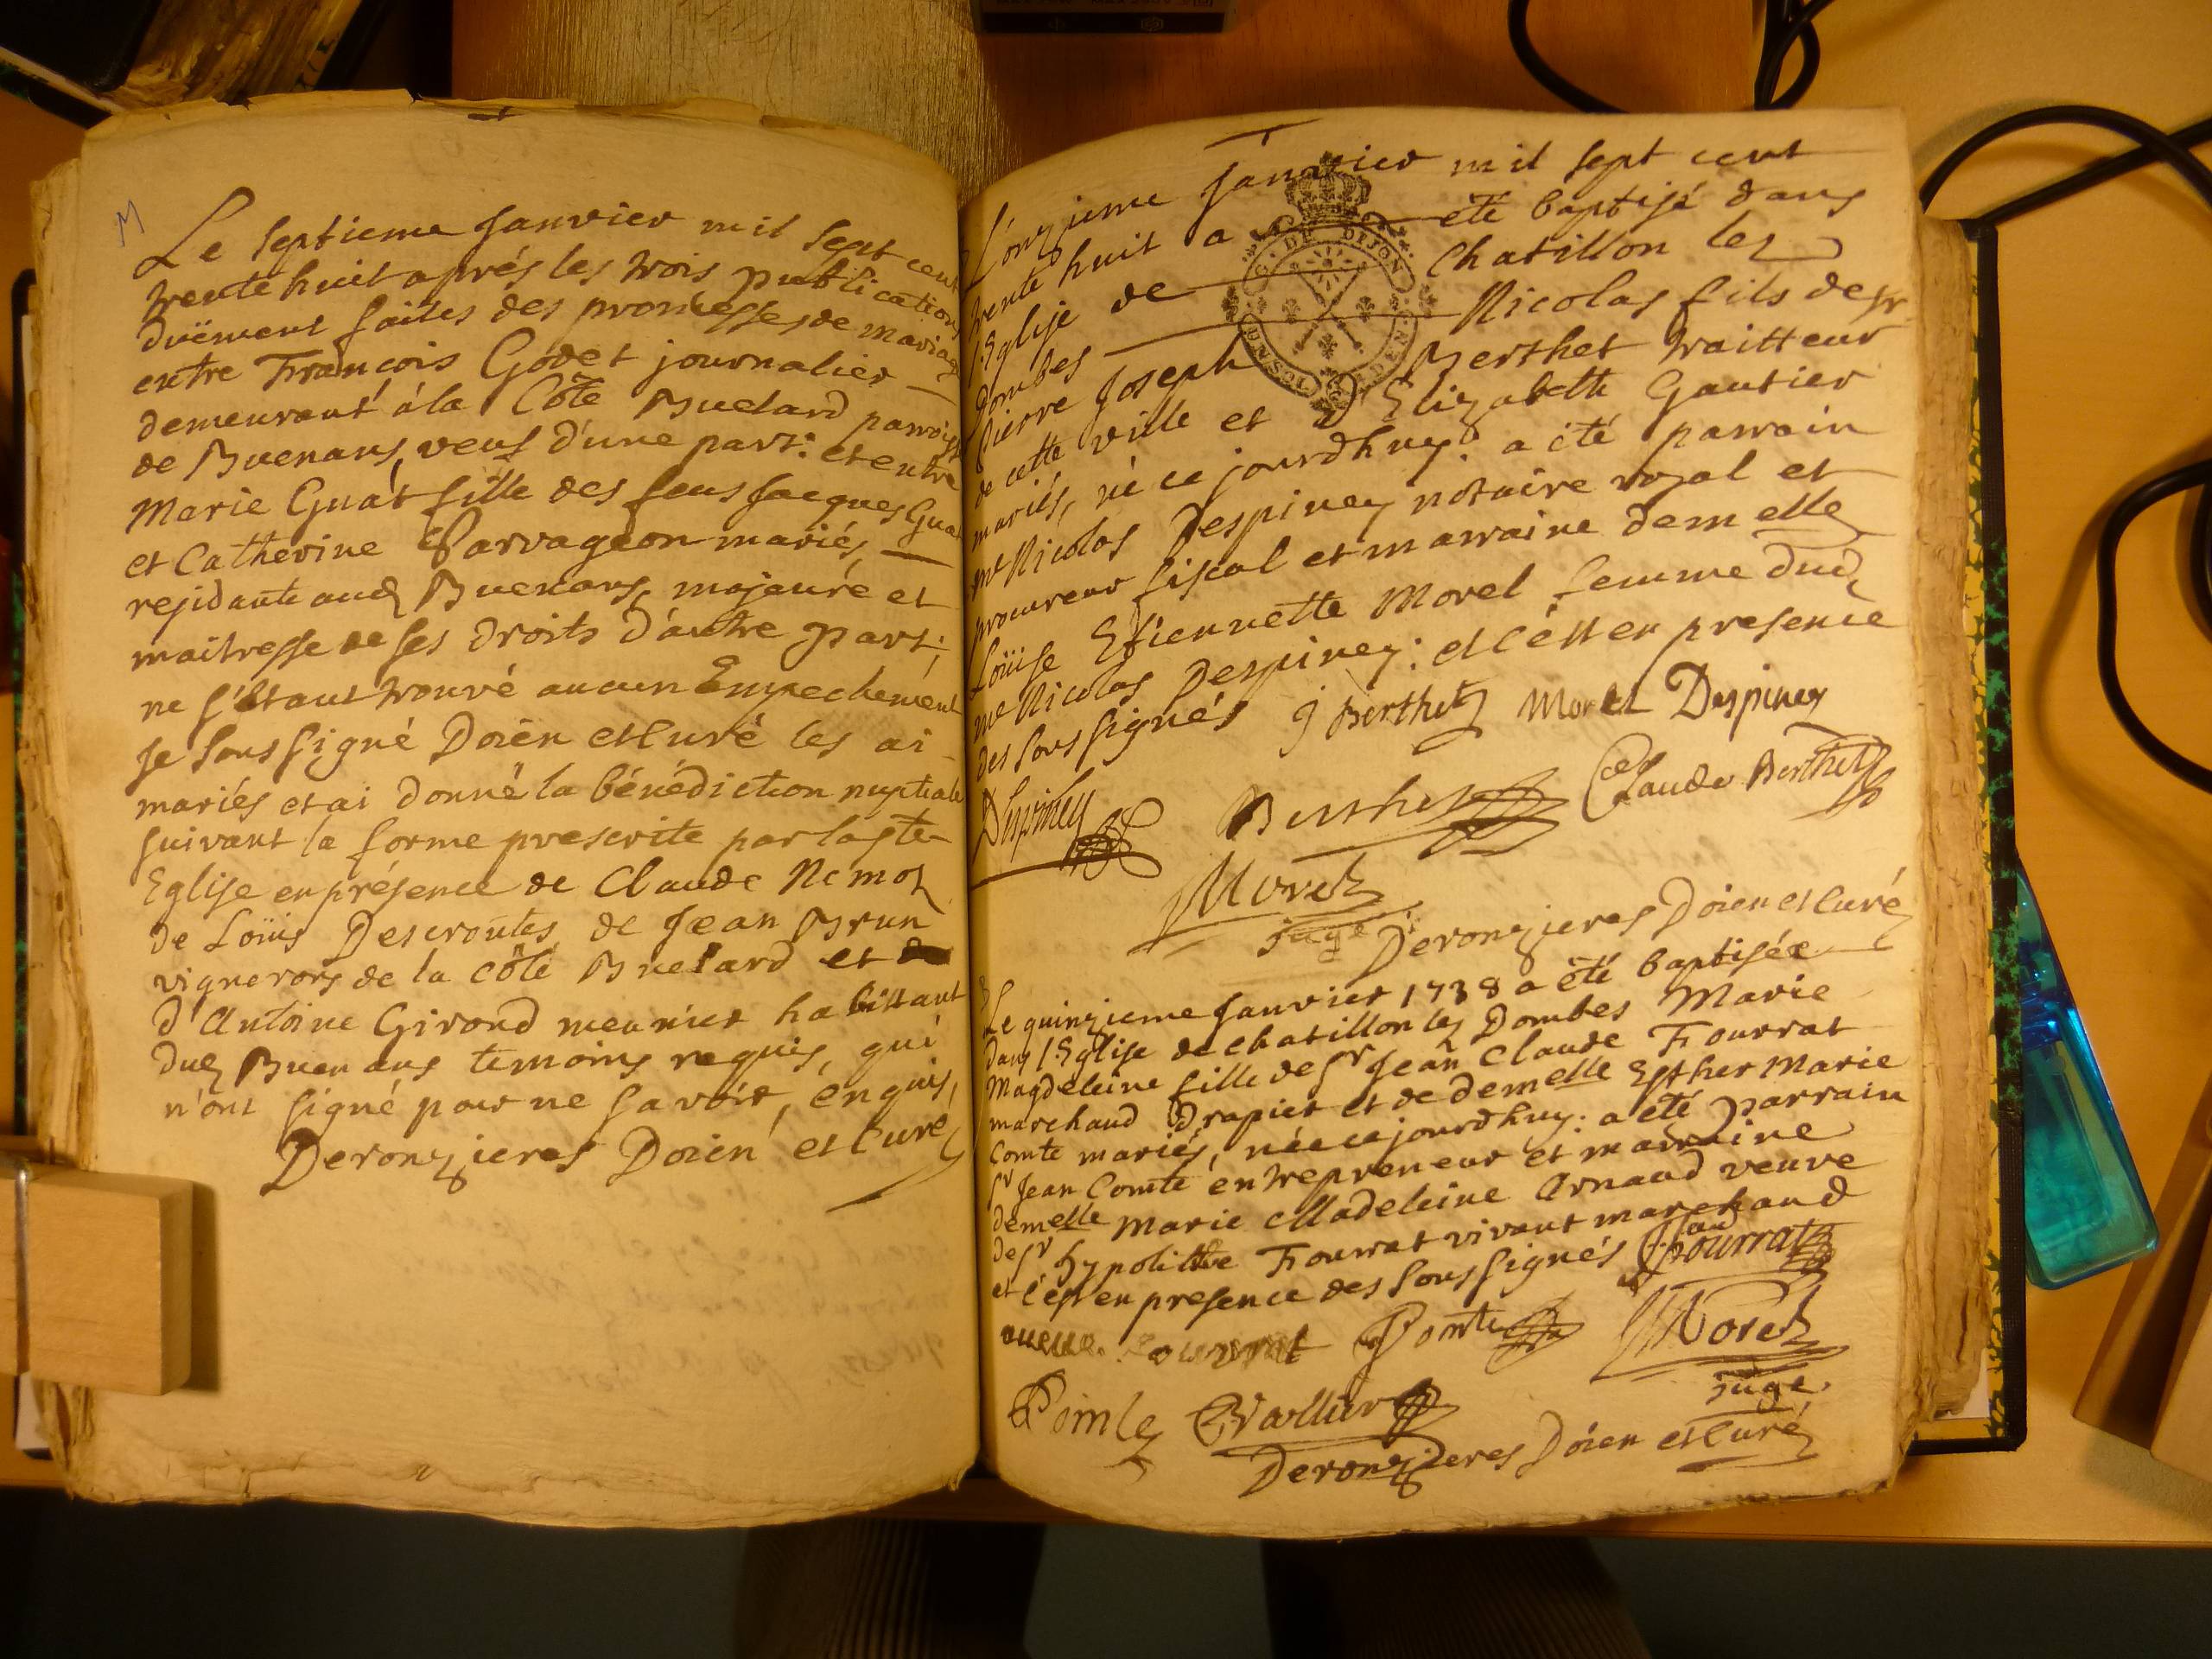 M
Le septieme Janvier mil sept cent
trente huit aprés les trois publications
duëment faites des promesses de mariage
entre François Godet journalier
demeurant á la Côte Buelard parroisse
de Buenans, veuf d'une part: et entre
Marie Guat fille des feus Jacques Guat
et Catherine Parvageon mariés,
residante aud Buenans, majeure et
maitresse de ses droits d'autre part;
ne s'étant trouvé aucun Empechement
je sous signé Doïen et Curé les ai
mariés et ai donné la bénédiction nuptiale
suivant la forme prescrite par la ste
Eglise en présence de Claude Nemoz
de Loüis Descroutes de Jean Brun
vignerons de la côte Buelard et
d'Antoine Giroud meunier habittant
dud Buenans temoins requis, qui
n'ont signé pour ne savoir, enquis,
Deronzieres Doïen et Curé
L'onzieme Janvier mil sept cent
trente huit a été baptisé dans
l'Eglise de Chatillon lez
Dombes Nicolas fils de sr
Pierre Joseph Berthet traitteur
de cette ville et d Elizabeth Gautier
mariés, né ce jourdhuy: a été parrain
me Nicolas Despiney notaire royal et
procureur fiscal et marraine demelle
Loüise Etiennette Morel femme dud
me Nicolas Despiney: et c'ést en presence
des sous signés J Berthet Morel Despiney
Despiney Berthet Claude Berthet
Morel
juge
Deronzieres Doïen et Curé
B
Le quinzieme Janvier 1738 a été baptisée
dans l'Eglise de Chatillon lez Dombes Marie
Magdeleine fille de sr Jean Claude Fourrat
marchand Drapier et de demelle Esther Marie
Comte mariés, née ce jourdhuy: a été parrain
sr Jean Comte entrepreneur et marraine
demelle Marie Madeleine Arnaud veuve
de sr hypolitte Fourrat vivant marchand
et c'ést en presence des sous signés Fourrat
Comte Morel
juge
Vallier
Deronzieres Doïen et Curé
C. DE DIJON